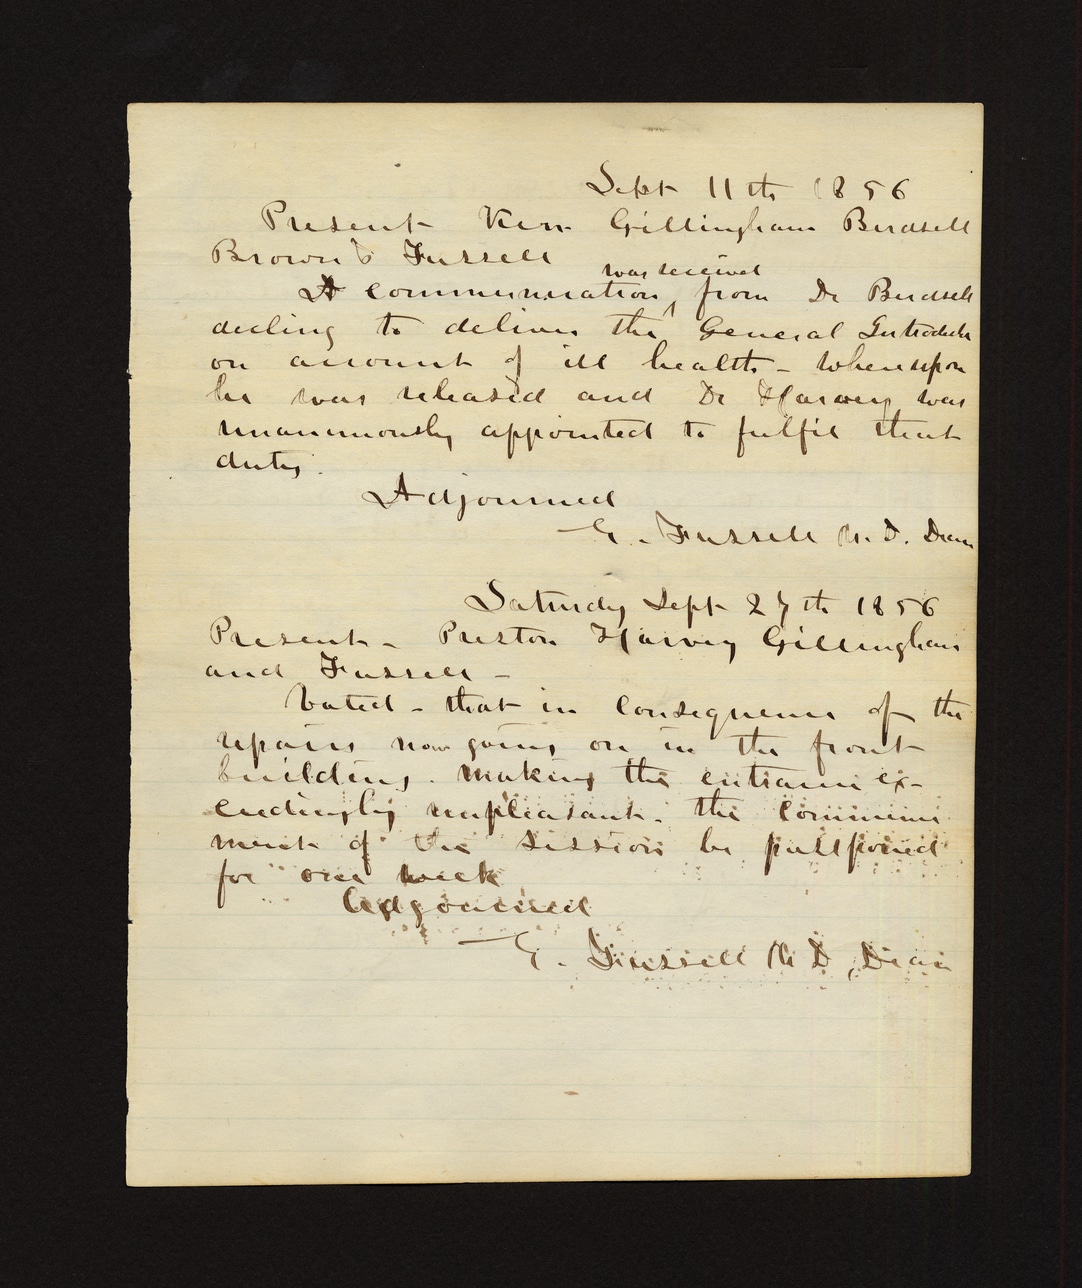 Sept 11th 1856
Present Kerr Gillingham Birdsell
Brown & Fussell
was received
A communication from Dr Birdsell
decling to deliver the General Introducte
on account of ill health - whereupon
he was released and Dr Harvey was
unanimously appointed to fulfil that
duty.
Adjourned
E. Fussell M. D. Dean
Saturday Sept 27th 1856
Present - Preston Harvey Gillingham
and Fussell -
Voted - that in consequence of the
repairs now going on in the front
building. making the entrance ex-
ceedingly unpleasant. the commence
ment of the session be postponed
for one week
Adjourned
E. Fussell M D, Dean